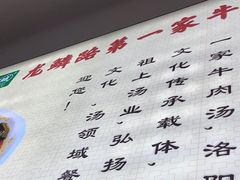 龙鳞路第一家牛
一家牛肉汤、洛阳
文化传承载体、
祖上汤业、弘扬
文化、汤领域餐
迎您!